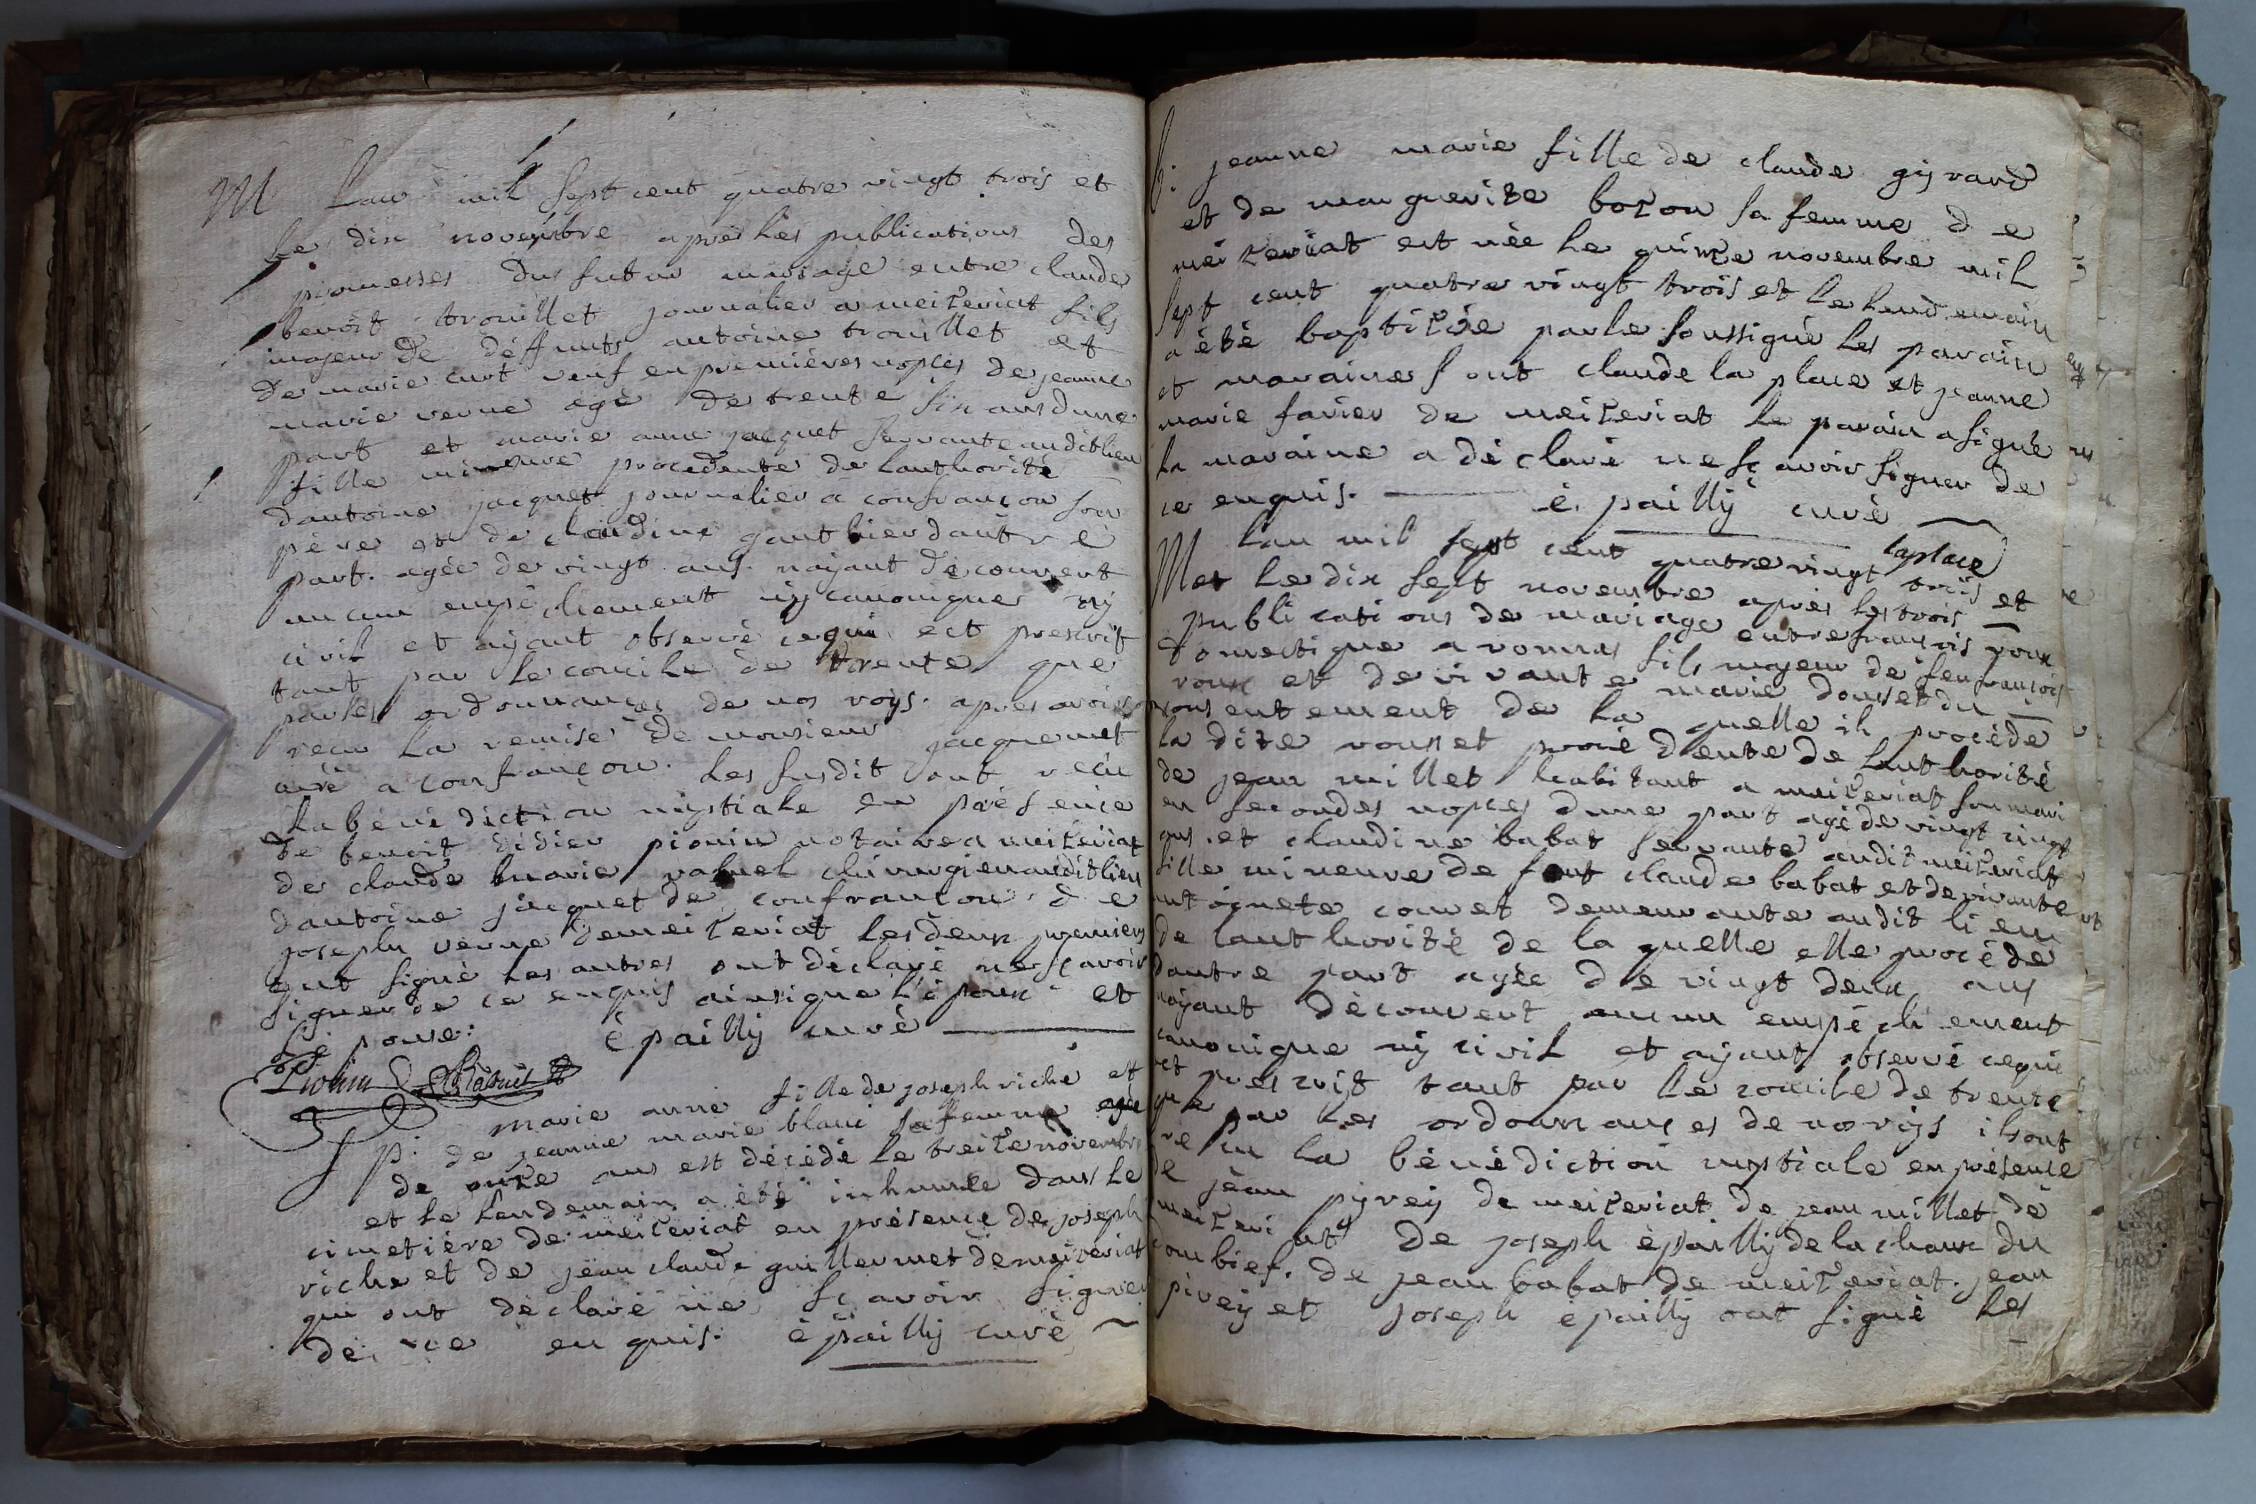 M lan mil sept cent quatre vingt trois et
le dix novembre après les publications des
promesses du futur mariage entre claude
benoit trouillet journalier a meizeriat fils
majeur de déffunts antoine trouillet et
de marie curt veuf en premières nopces de jeanne
marie verne agé de trente six ans dune
part et marie anne jacquet servante au dit lieu
fille mineure procedente de lauthorité
dantoine jacquet journalier a confrançon son
père et de claudine gauthier dautre
part agée de vingt ans nayant découvert
aucun empêchement ny canonique ny
civil et ayant observé ce qui est prescrit
tant par le concile de trente que
par les ordonnances de nos roys. apres avoir
recu la remise de monsieur jacquemet
curé a confrançon. les susdit ont recu
la bénédiction nuptiale en présence
de benoit didier pionin notaire a meizeriat
de claude marie rabuel chirurgien audit lieu
dantoine jacquet de confrancon de
joseph verne de meizeriat les deux premiers
ont signé les autres ont déclaré ne sçavoir
signer de ce enquis ainsi que lépoux et
lépouse: épailly curé
Pionin Rabuel
marie anne fille de joseph riche et
p. de jeanne marie blanc sa femme agée
de onze ans est décédé le treize novembre
et le lendemain a été inhumée dans le
cimetière de meizeriat en présence de joseph
riche et de jean claude guillermet de meizeriat
qui ont déclaré ne sçavoir signer
de ce enquis. épailly curé
b: jeanne marie fille de claude gyrard
et de marguerite bozon sa femme de
meizeriat est née le quinze novembre mil
sept cent quatre vingt trois et le lendemain
a été baptizée par le soussigné les parain
et maraine sont claude la place et jeanne
marie favier de meizeriat le parain a signé
la maraine a déclaré ne sçavoir signer de
ce enquis. épailly curé
laplace
M lan mil sept cent quatre vingt trois et
le dix sept novembre après les trois
publications de mariage entre françois roux
domestique a vonnas fils majeur de feu francois
roux et de vivante marie dousset du
consentement de la quelle il procède
la dite rousset procedente de lauthorité
de jean millet habitant a meizeriat son mari
en secondes nopces dune part agé de vingt cinq
ans et claudine babat servante audit meizeriat
fille mineure de feut claude babat et de vivante
antoinete couvet demeurante audit lieu
de lauthorité de la quelle elle procède
dautre part agée de vingt deux ans
nayant découvert aucun empêchement
canonique ny civil et ayant observé ce qui
est prescrit tant par le concile de trente
que par les ordonnances de no roys ils ont
recu la bénédiction nuptiale en présence
de jean pyrey de meizeriat de jean millet de
meizeriat de joseph épailly de la chaux du
dombief. de jean babat de meizeriat. jean
pirey et joseph épailly ont signé les